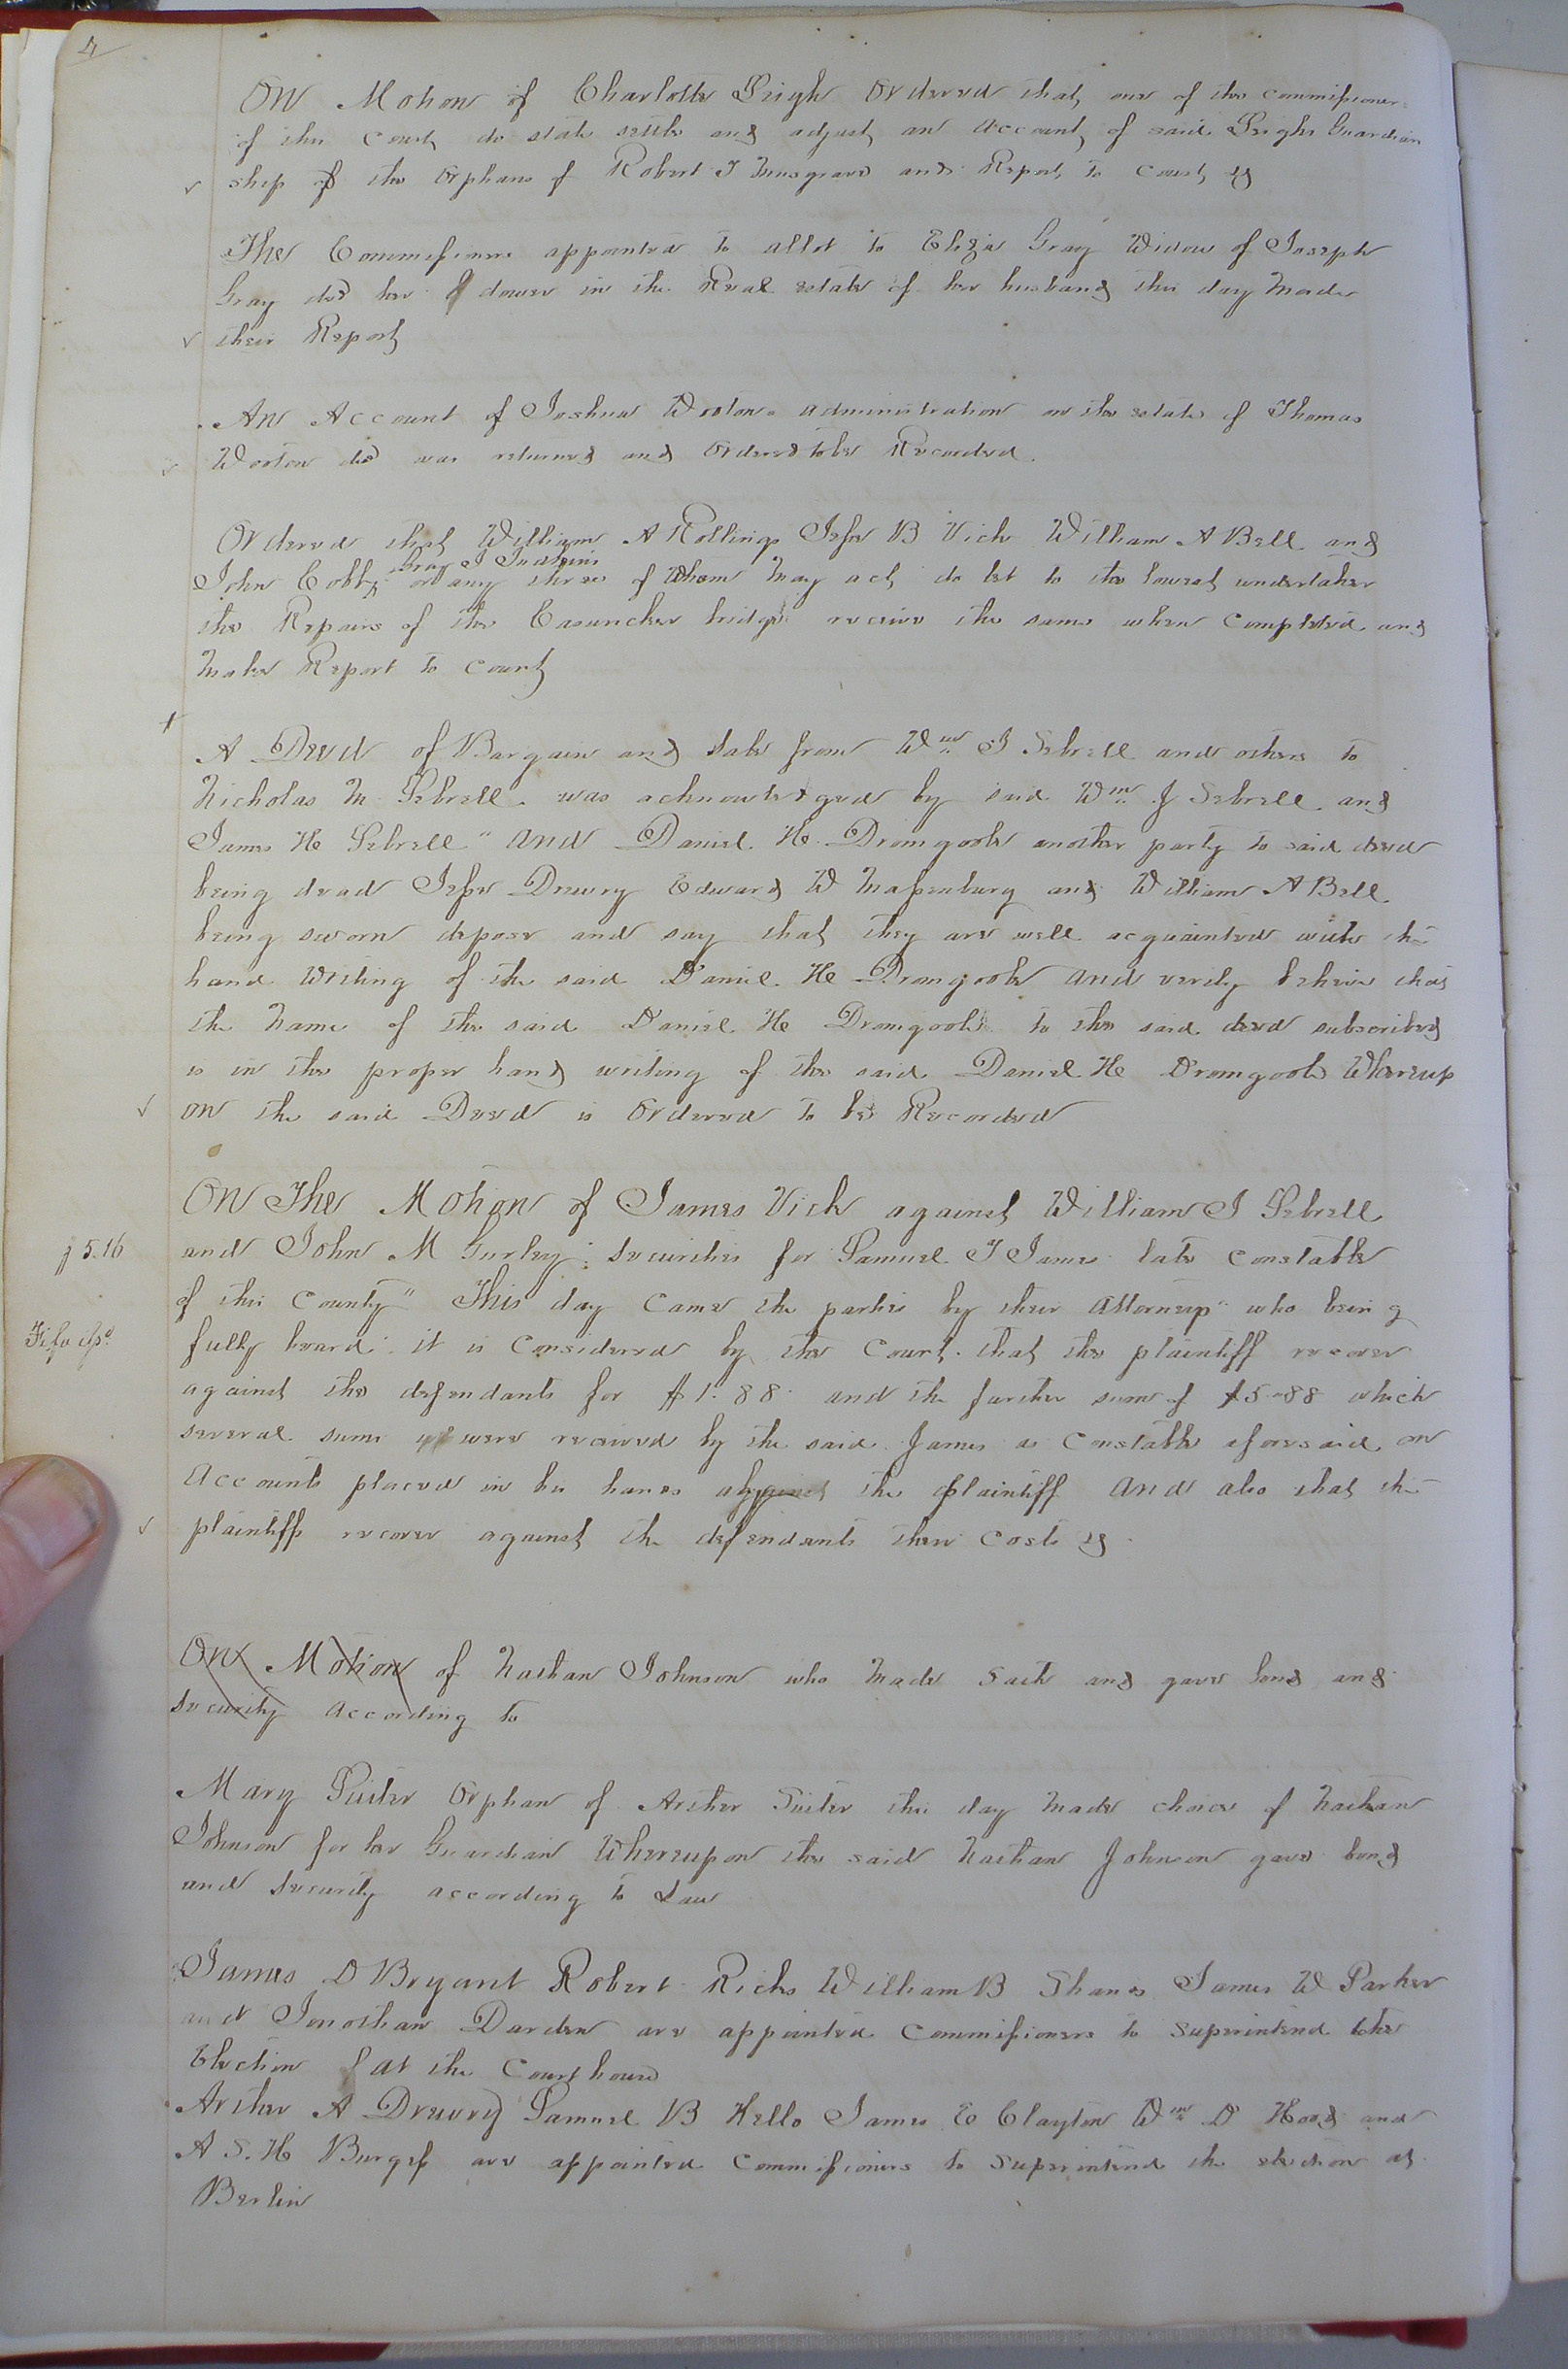 4
On Motion of Charlotte Leigh Ordered that one of the commissioners
of this Court do state settle and adjust an account of said Leighs Guardian
ship of the Orphans of Robert J Musgrave and Report to Court &c
The Commissioners appointed to allot to Eliza Gray Widow of Joseph
Gray decd her dower in the Real estate of her husband this day Made
their Report
An Account of Joshua Wootons administration on the estate of Thomas
Wooton decd was returned and Ordered to be Recorded.
Ordered that William A Rollings Jesse B Vick William A Bell and
John Cobb, or any three of Whom May act, do let to the lowest undertaker
the Repairs of the bridge receive the same when Completed and
Make Report to Court
A Deed of Bargain and Sale from Wm J Sebrell and others to
Nicholas M Sebrell was acknowledged by said Wm J Sebrell and
James H Sebrell " and Daniel H Dromgoole another party to said deed
being dead Jesse Drewry Edward W Massenburg and William A Bell
being sworn depose and say that they are well acquainted with the
hand Writing of the said Daniel H Dromgoole and verily believe that
the Name of the said Daniel H Dromgoole to the said deed subscribed
is in the proper hand writing of the said Daniel H Dromgoole Whereup
on the said Deed is Ordered to be Recorded
On The Motion of James Vick against William J Sebrell
5.16 and John M Gurley Securities for Samuel J James late Constable
of this County" This day Came the parties by their Attorneys who being
Fi fa issd. fully heard it is Considered by the Court that the plaintiff recover
against the defendants for $1.88 and the further sum of $5.88 which
several sums were received by the said James as Constable aforesaid on
Accounts placed in his hands against the plaintiff and also that the
plaintiff recover against the defendants their Costs &c
On Motion of Nathan Johnson who Made oath and gave bond and
Security According to
Mary Suiter Orphan of Arthur Suiter this day Made choice of Nathan
Johnson for her Guardian Whereupon the said Nathan Johnson gave bond
and Security according to Law
James D Bryant Robert Ricks William B Shands James W Parker
and Jonathan Darden are appointed Commissioners to Superintend the
Election at the Courthouse
Arthur A Drewry Samuel B Kello James E Clayton Wm D Hood and
A S. H Burges are appointed Commissioners to Superintend the election at
Berlin